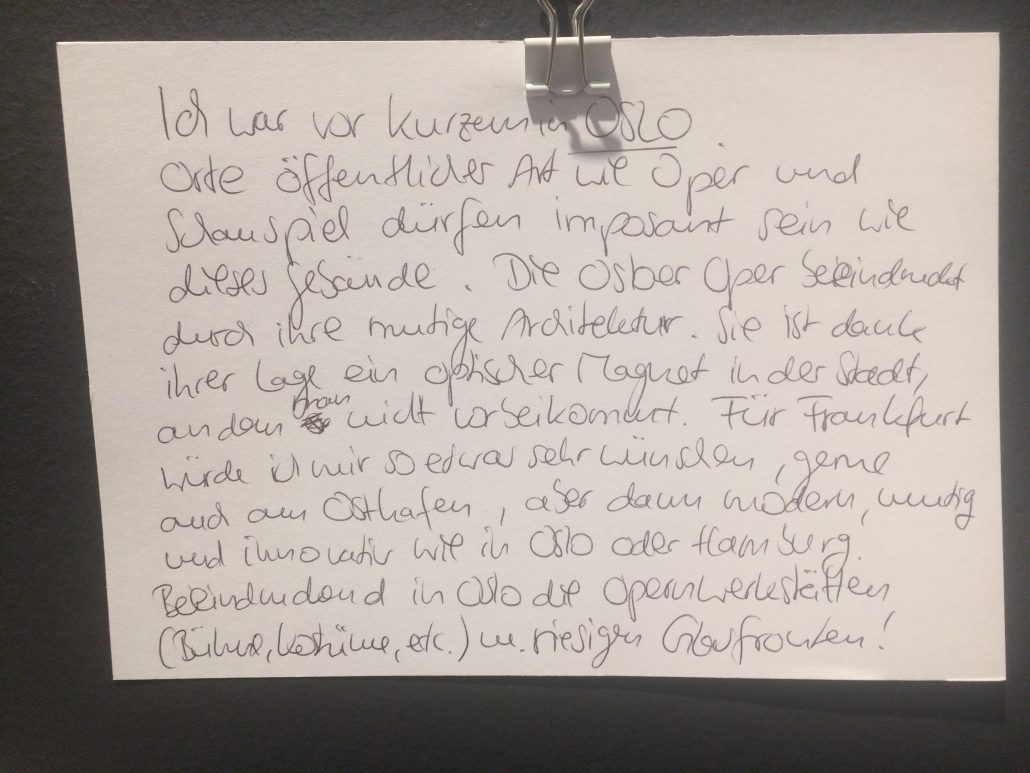 Ich war vor kurzem in Oslo
Orte öffentlicher Art wie Oper und
Schauspiel dürfen imposant sein wie
dieses Gebäude. Die Osloer Oper beeindruckt
durch ihre mutige Architektur. Sie ist dank
ihrer Lage ein optischer Magnet in der Stadt,
an dem man nicht vorbeikommt. Für Frankfurt
würde ich mir so etwas sehr wünschen, gerne
auch am Osthafen, aber dann modern, mutig
und innovativ wie in Oslo oder Hamburg.
Beeindruckend in Oslo die Opernwerkstätten
(Bühne, Kostüme, etc.) m. riesigen Glasfronten!